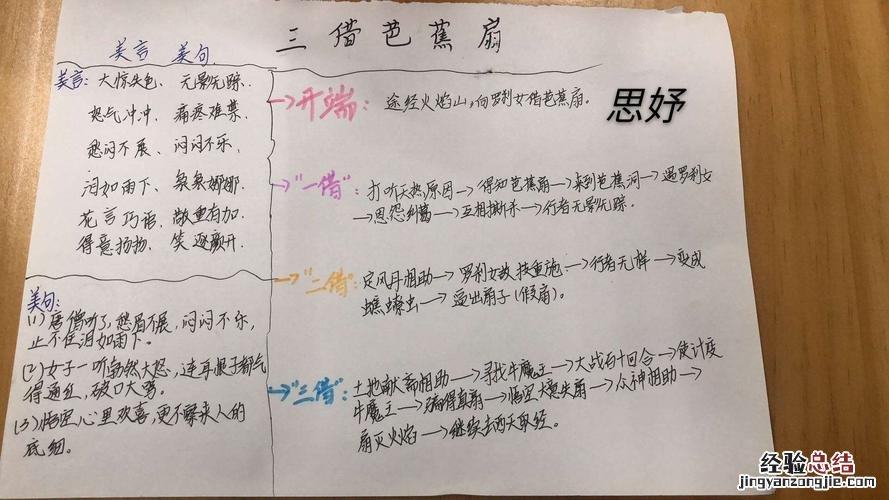 三借芭蕉扇
美言 美句
美言：大惊失色、无影无踪、
怒气冲冲、痛疼难禁、
愁闷不展、闷闷不乐、
泪如雨下、袅袅娜娜、
花言巧语、敬重有加、
得意扬扬、笑逐颜开、
美句：
(1)唐僧听了，愁眉不展，闷闷不乐，
止不住泪如雨下。
(2)女子一听勃然大怒，连耳根子都气
得通红，破口大骂。
(3)悟空心里欢喜，更不晓来人的
底细。
→开端：途经火焰山，向罗刹女借芭蕉扇。
思妤
→"一借"：打听天热原因→得知芭蕉扇→来到芭蕉洞→遇罗刹女
→恩怨纠葛→互相撕杀→行者无影无踪。
→"二借"：定风丹相助→罗刹女故技重施→行者无样→变成
蟭蟟虫→逼出扇子(假扇)。
→"三借"：土地献斋相助→寻找牛魔王→大战百十回合→使计变
牛魔王→骗得真扇→悟空大意失扇→众神相助→
扇灭火焰→继续去西天取经。
经验总结
jingyanzongjie.com